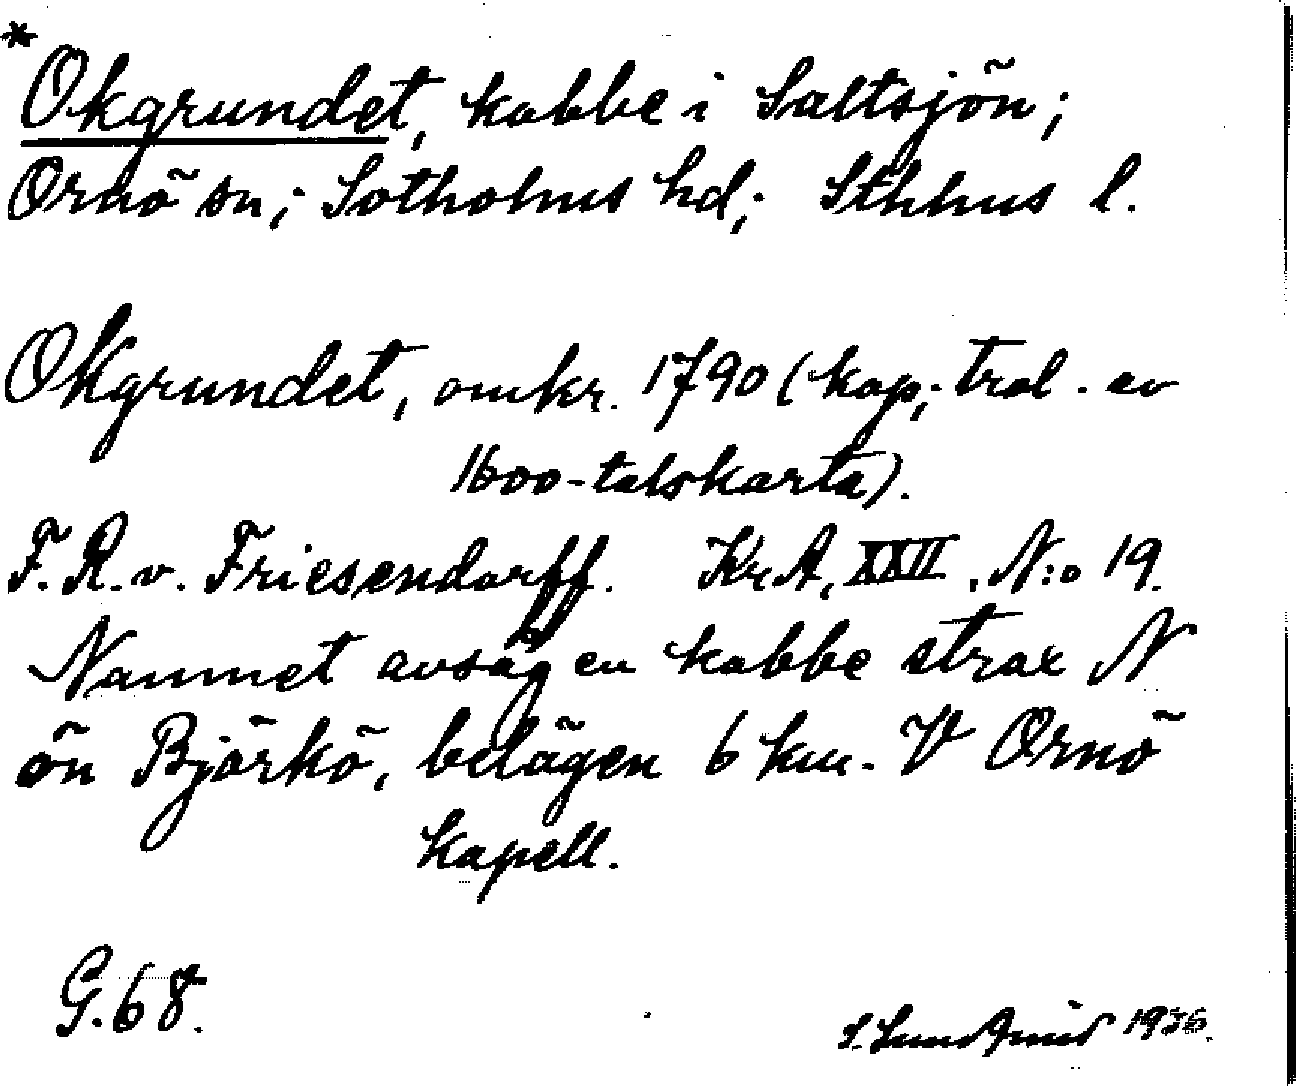 *
Okgrundet, kobbe i Saltsjön;
Ornö sn; Sotholms hd; Sthlms l.
Okgrundet, omkr. 1790 (kop; trol. av
1600-talskarta).
F. R. v. Friesendorff. Kr.A, XXII, N:o 19.
Namnet avsåg en kobbe strax N
ön Björkö, belägen 6 km. V Ornö
kapell.
G. 68.
S. Lundqvist 1936.